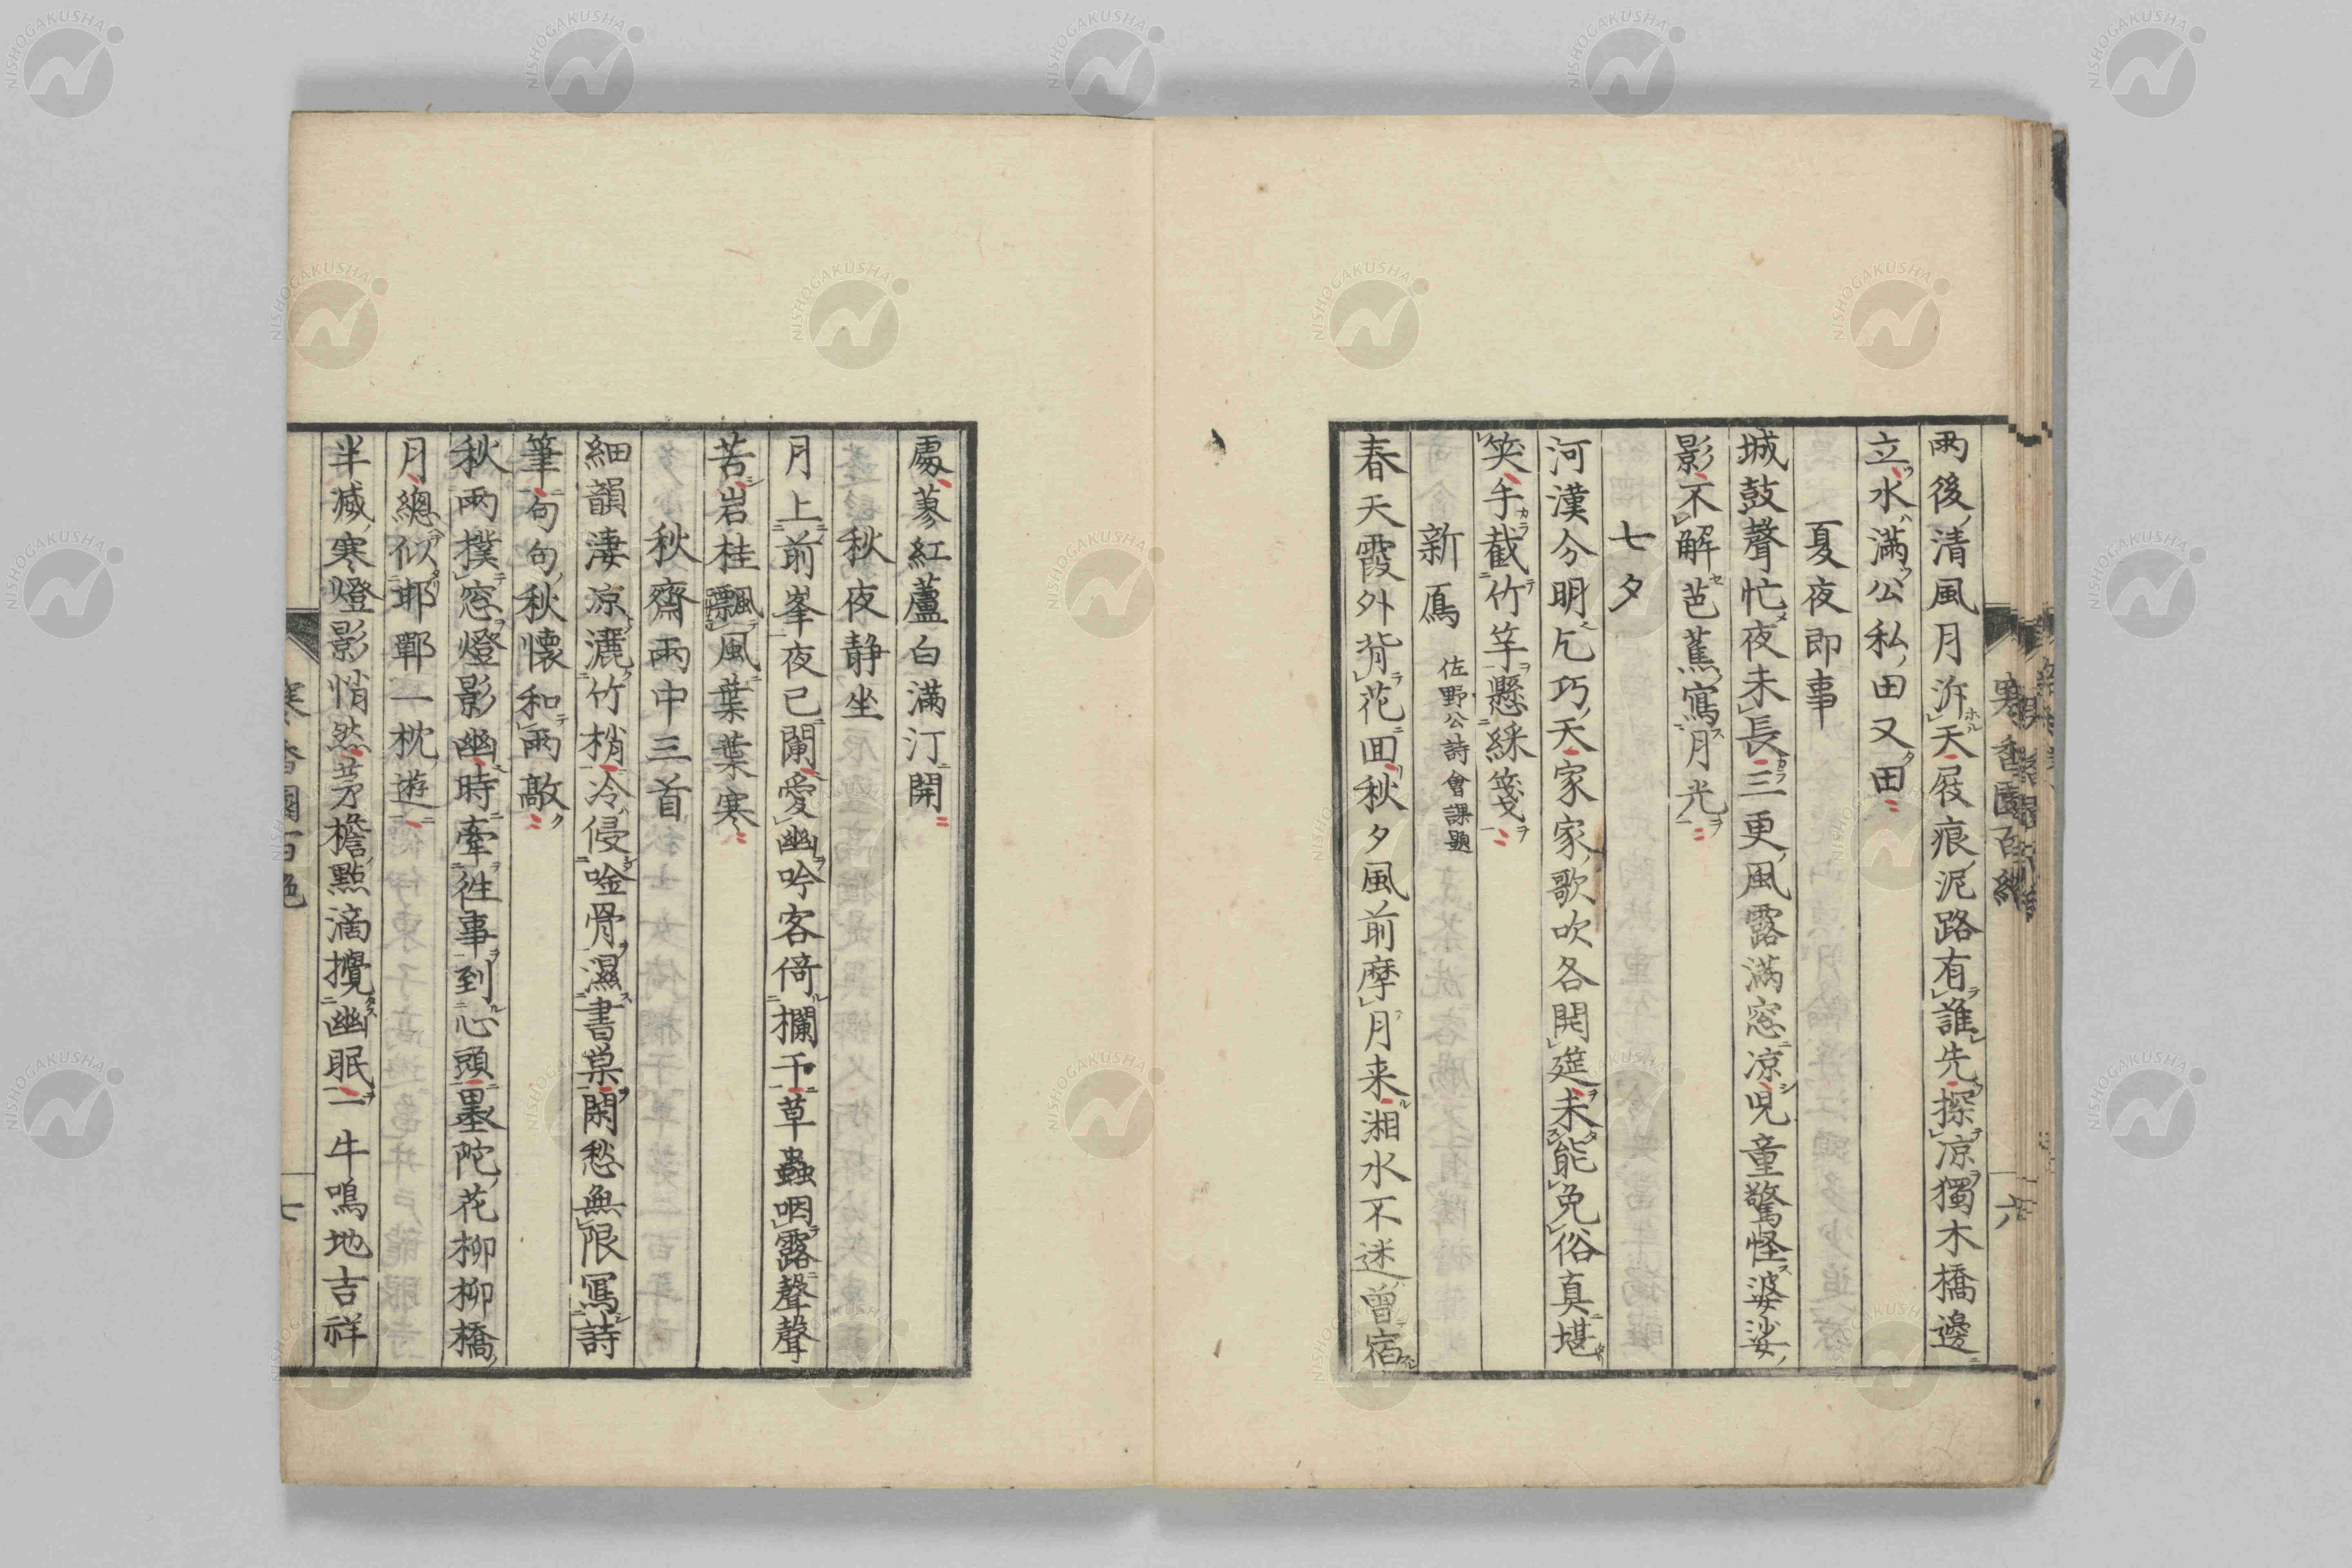 雨後清風月泝天屐痕泥路有誰先探凉獨木橋邊
立水滿公私田又田
夏夜即事
城鼓聲忙夜未長三更風露滿窓凉兒童驚怪婆娑
影不解芭蕉寫月光
七夕
河漢分明乞巧天家家歌吹各開筵未能免俗真堪
笑手截竹竿懸綵箋
新鴈 佐野公詩會課題
春天霞外背花回秋夕風前摩月来湘水不迷曽宿
處蓼紅蘆白滿汀開
秋夜静坐
月上前峯夜已闌愛幽吟客倚欄干草蟲咽露聲聲
苦岩桂飄風葉葉寒
秋齋雨中三首
細韻淒凉灑竹梢冷侵唫骨濕書巢閑愁無限寫詩
筆句句秋懐和雨敲
秋雨撲窓燈影幽時牽徃事到心頭墨陀花柳柳橋
月總似邯鄲一枕遊
半减寒燈影悄然茅檐點滴攪幽眠一牛鳴地吉祥
寒香園百絶
七
六
NISHOGAKUSHA